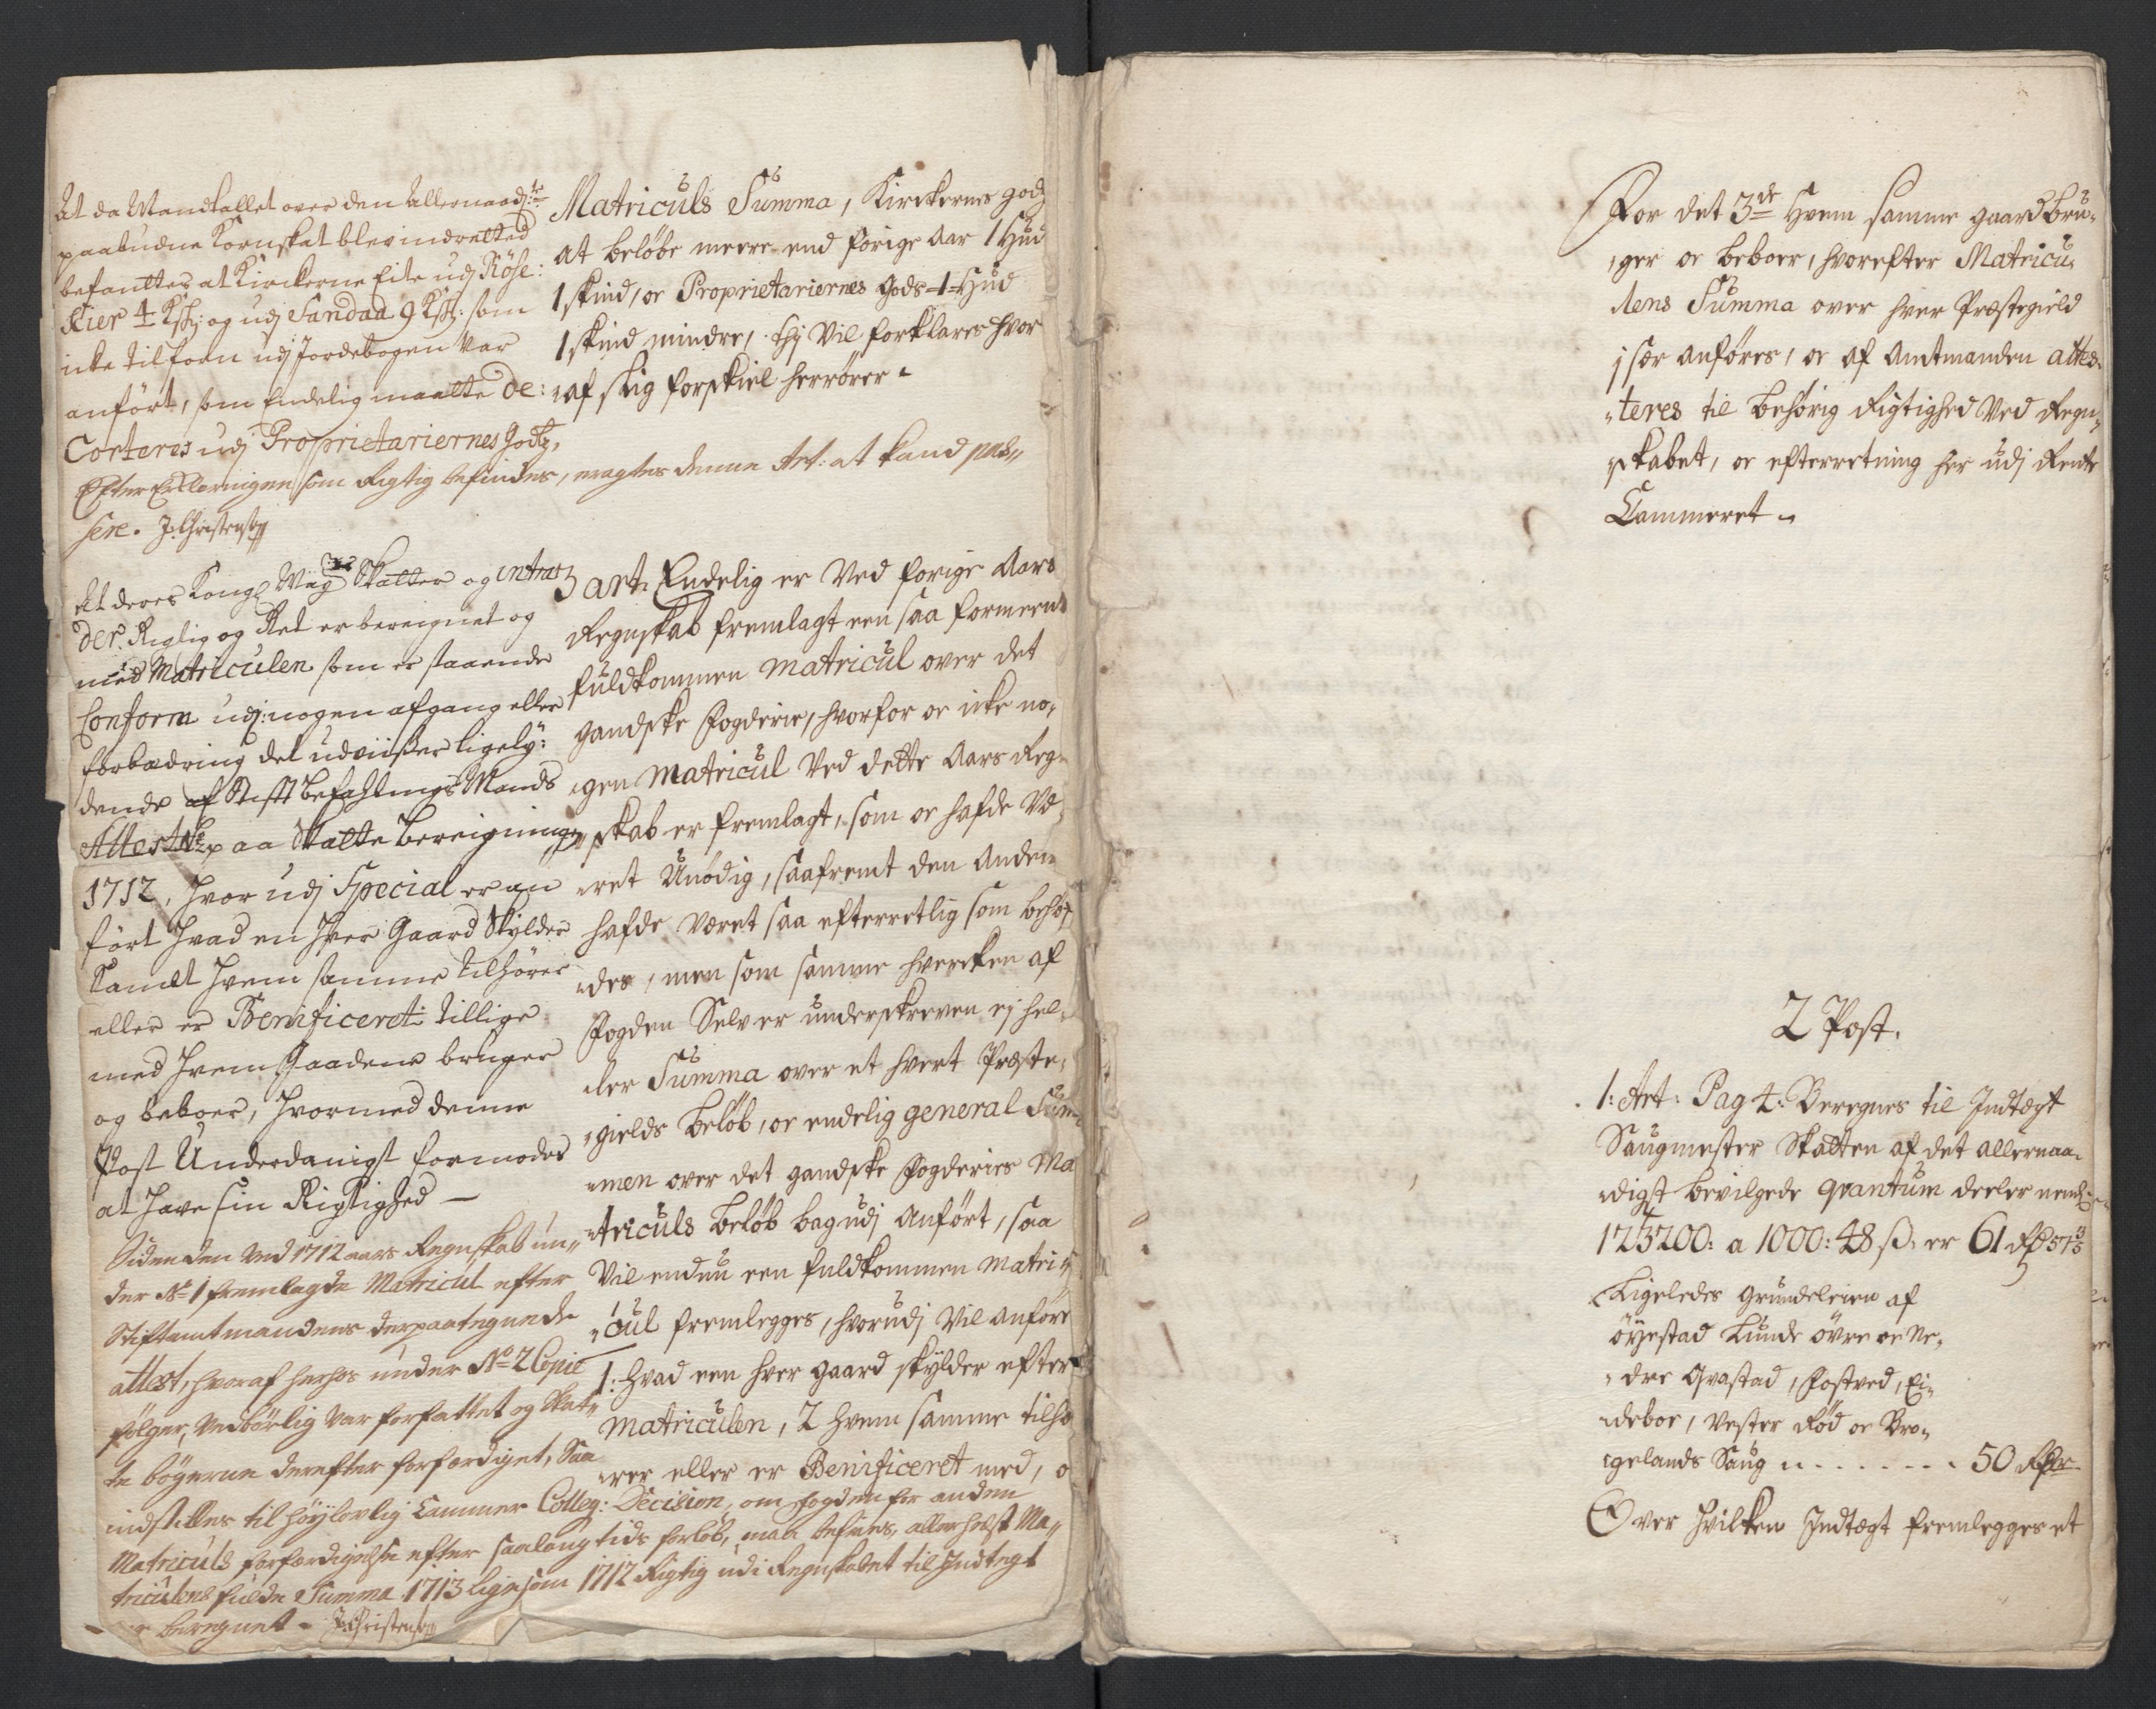 At da Mandtallet over den Allernaadste
paabudne Kornskat blev indrettet
befantes at Kirckerne Eite udj Röse:
kier 4 Ksk: og udj Sandaa 9 Ksk: som
icke tilforn udj Jordebogen var
anfört, som Endelig maatte De:
Corteres udj Proprietariernes Godtz,
Efter Erkleringen som Rigtig befindes, eragtes denne Art: at kand pas„
sere. J: Christensen
At deres Kongl May Skatter og intra
der. Rigtig og Ret er bereignet og
med Matriculen som er staaende
Conform udj: nogen afgang eller
forbædring det udviiser ligely:
dende af Stift Befahlings Mands
Attest No paa Skatte Bereigning
1712, hvor udj Special er an
fört hvad en hver Gaard Skylder
Samt hvem samme tilhører
eller er Benificeret tillige
med hvem Gaadene bruger
og beboer, hvormed denne
Post Underdanigst formodes
at have sin Rigtighed —
Siden den ved 1712 aars Regnskab un„
der No 1 fremlagde Matricul efter
Stiftamtmandens derpaategnede
attest, hvoraf herhos under No 2 Copie
følger, vedbørlig var forfattet og Skat„
te bögerne derefter forfærdiget, Saa
indstilles til höylovlig Cammer Colleg: Decision, om fogden for anden
Matriculs forfærdigelse efter saalang tids forløb, maa befries, allerhelst Ma„
triculens fulde Summa 1713 ligesom 1712 Rigtig udi Regnskabet til Indtegt
er beregnet - J: Christensen
Matriculs Summa, Kirckernes godz
at beløbe meere end forige Aar 1 Hud
1 skind, oc Proprietariernes Gods 1 Hud
1 skind mindre, thj vil forklares hvor
af slig forskiel herrører
3 art: Endelig er ved forige Aars
Regnskab fremlagt een saa formeent
fuldkommen matricul over det
gandske Fogderie, hvorfor oc icke no„
gen matricul ved dette Aars Reg„
skab er fremlagt, som oc hafde væ„
ret Unödig, saafremt den Anden
hafde været saa efterretlig som behø„
des, men som samme hvercken af
Fogden Selv er underskreven ej hel„
ler Summa over et hvert Præste„
gields beløb, oc endelig general Sum„
men over det gandske Fogderies Ma
triculs beløb bag udj Anført, saa
vil endnu een fuldkommen matri„
cul fremlegges, hvorudj vil anføre
1: hvad een hver gaard skylder efter
matriculen, 2 hvem samme tilhø
rer eller er Benificeret med, o
For det 3de hvem samme gaard bru„
ger oc beboer, hvorefter Matricu„
lens Summa over hver Præstegield
jsær anføres, oc af Amtmanden attes„
teres til behørig Rigtighed ved Regn„
skabet, oc efterretning her udj Rente
Cammeret
2 Post.
1: Art: Pag 4: Beregnes til Indtægt
Saugmester Skatten af det allernaa„
digst bevilgede qvantum deeler nemlig
123200: a 1000: 48 ß: er 61 Rd 57 3/5
Ligeledes grundeleien af
öyestad Lunde övre oc Ne„
dre Qvastad, Fostved, Ei„
deboe, Vester Röd oc Bro„
gelands Saug - - - - - - - 50 Rdr
Over hvilken Indtægt fremlegges et